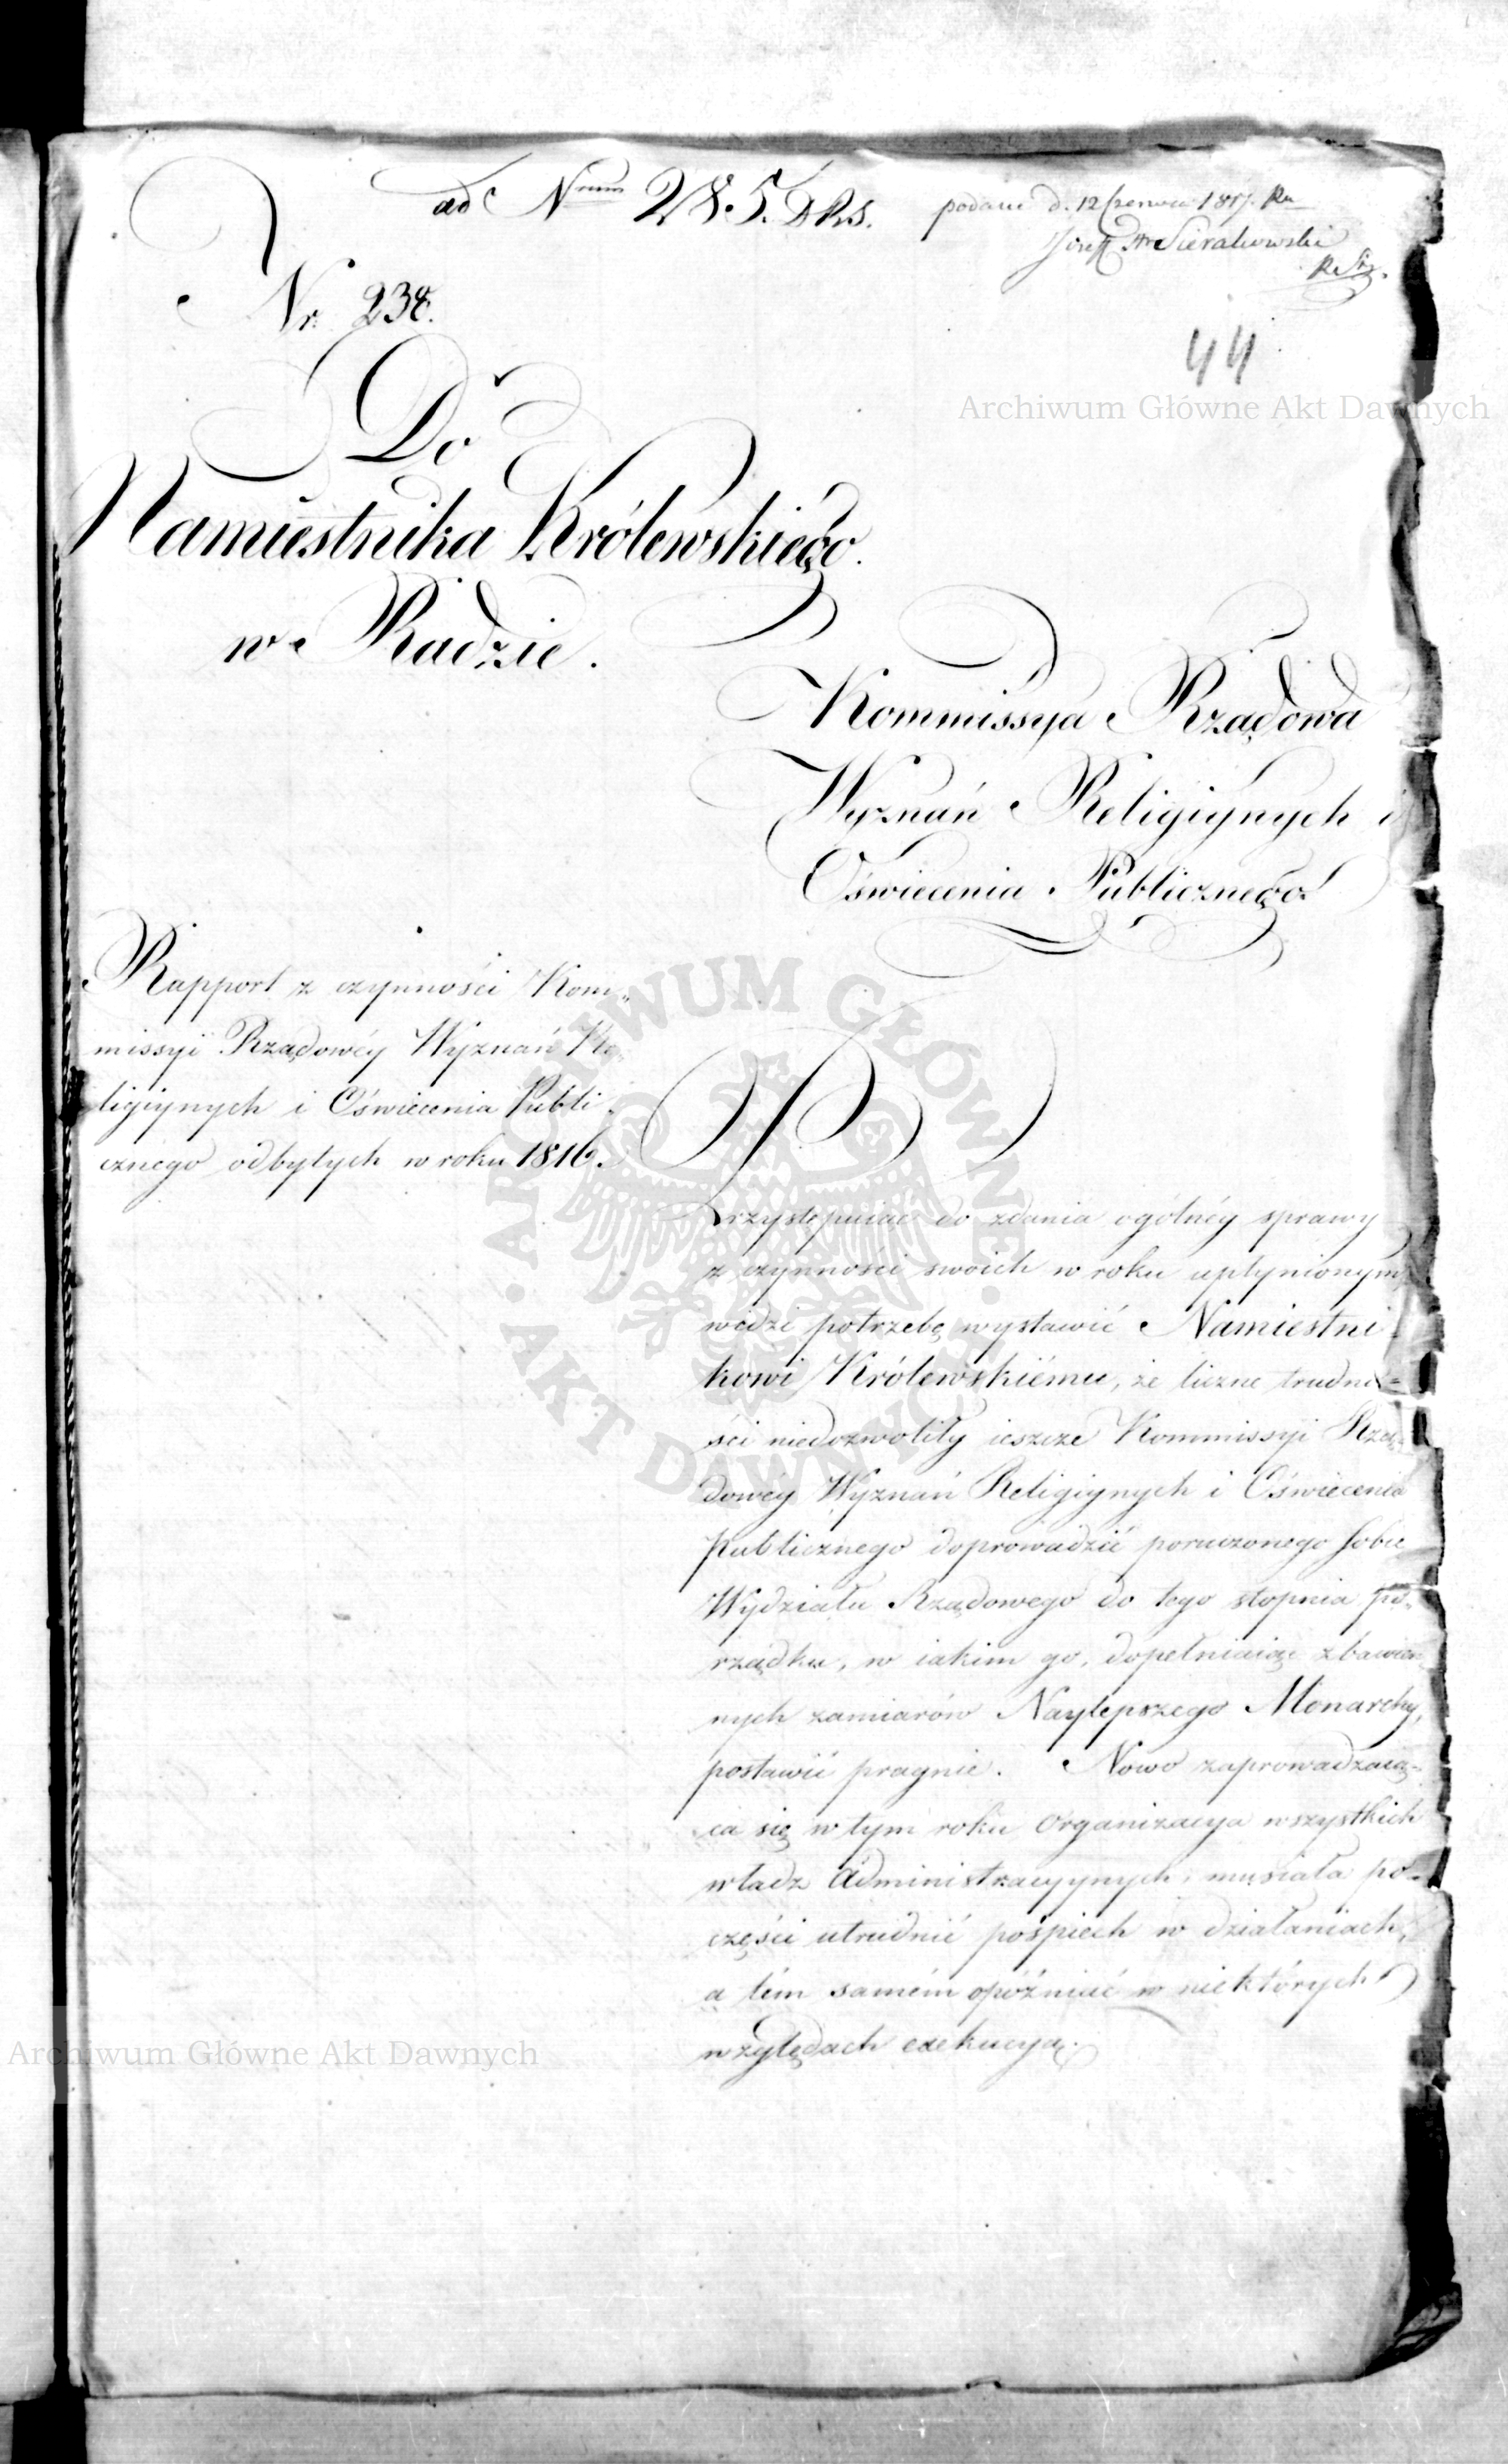 ad Nrum 285. DRS.
podane d. 12 Czerwca 1817. Ru
Józef Sierakowski
R. St.
Nr. 238.
44
Archiwum Główne Akt Dawnych
Do
Namiestnika Królewskiego.
w Radzie.
Kommissya Rządowa
Wyznań Religiynych i
Oświecenia Publicznego.
Rapport z czynności Kom„
missyi Rządowéy Wyznań Re„
ligiynych i Oświecenia Publi„
cznego odbytych w roku 1816.
ARCHIWUM GŁÓWNE AKT DAWNYCH
Przystępuiąc do zdania ogólnéy sprawy
z czynności swoich w roku upłynionym,
widzi potrzebę wystawić Namiestni„
kowi Królewskiému, że liczne trudno„
ści niedozwoliły ieszcze Kommissyi Rzą„
dowéy Wyznań Religiynych i Oświecenia
Publicznego doprowadzić poruczonego sobie
Wydziału Rządowego do tego stopnia po„
rządku, w iakim go, dopełniaiąc zbawien„
nych zamiarów Naylepszego Monarchy,
postawić pragnie. Nowo zaprowadzaią„
ca się w tym roku Organizacya wszystkich
władz Administracyynych, musiała po„
części utrudnić pośpiech w działaniach,
a tém samém opóźniać w niektórych
względach exekucyą.
Archiwum Główne Akt Dawnych